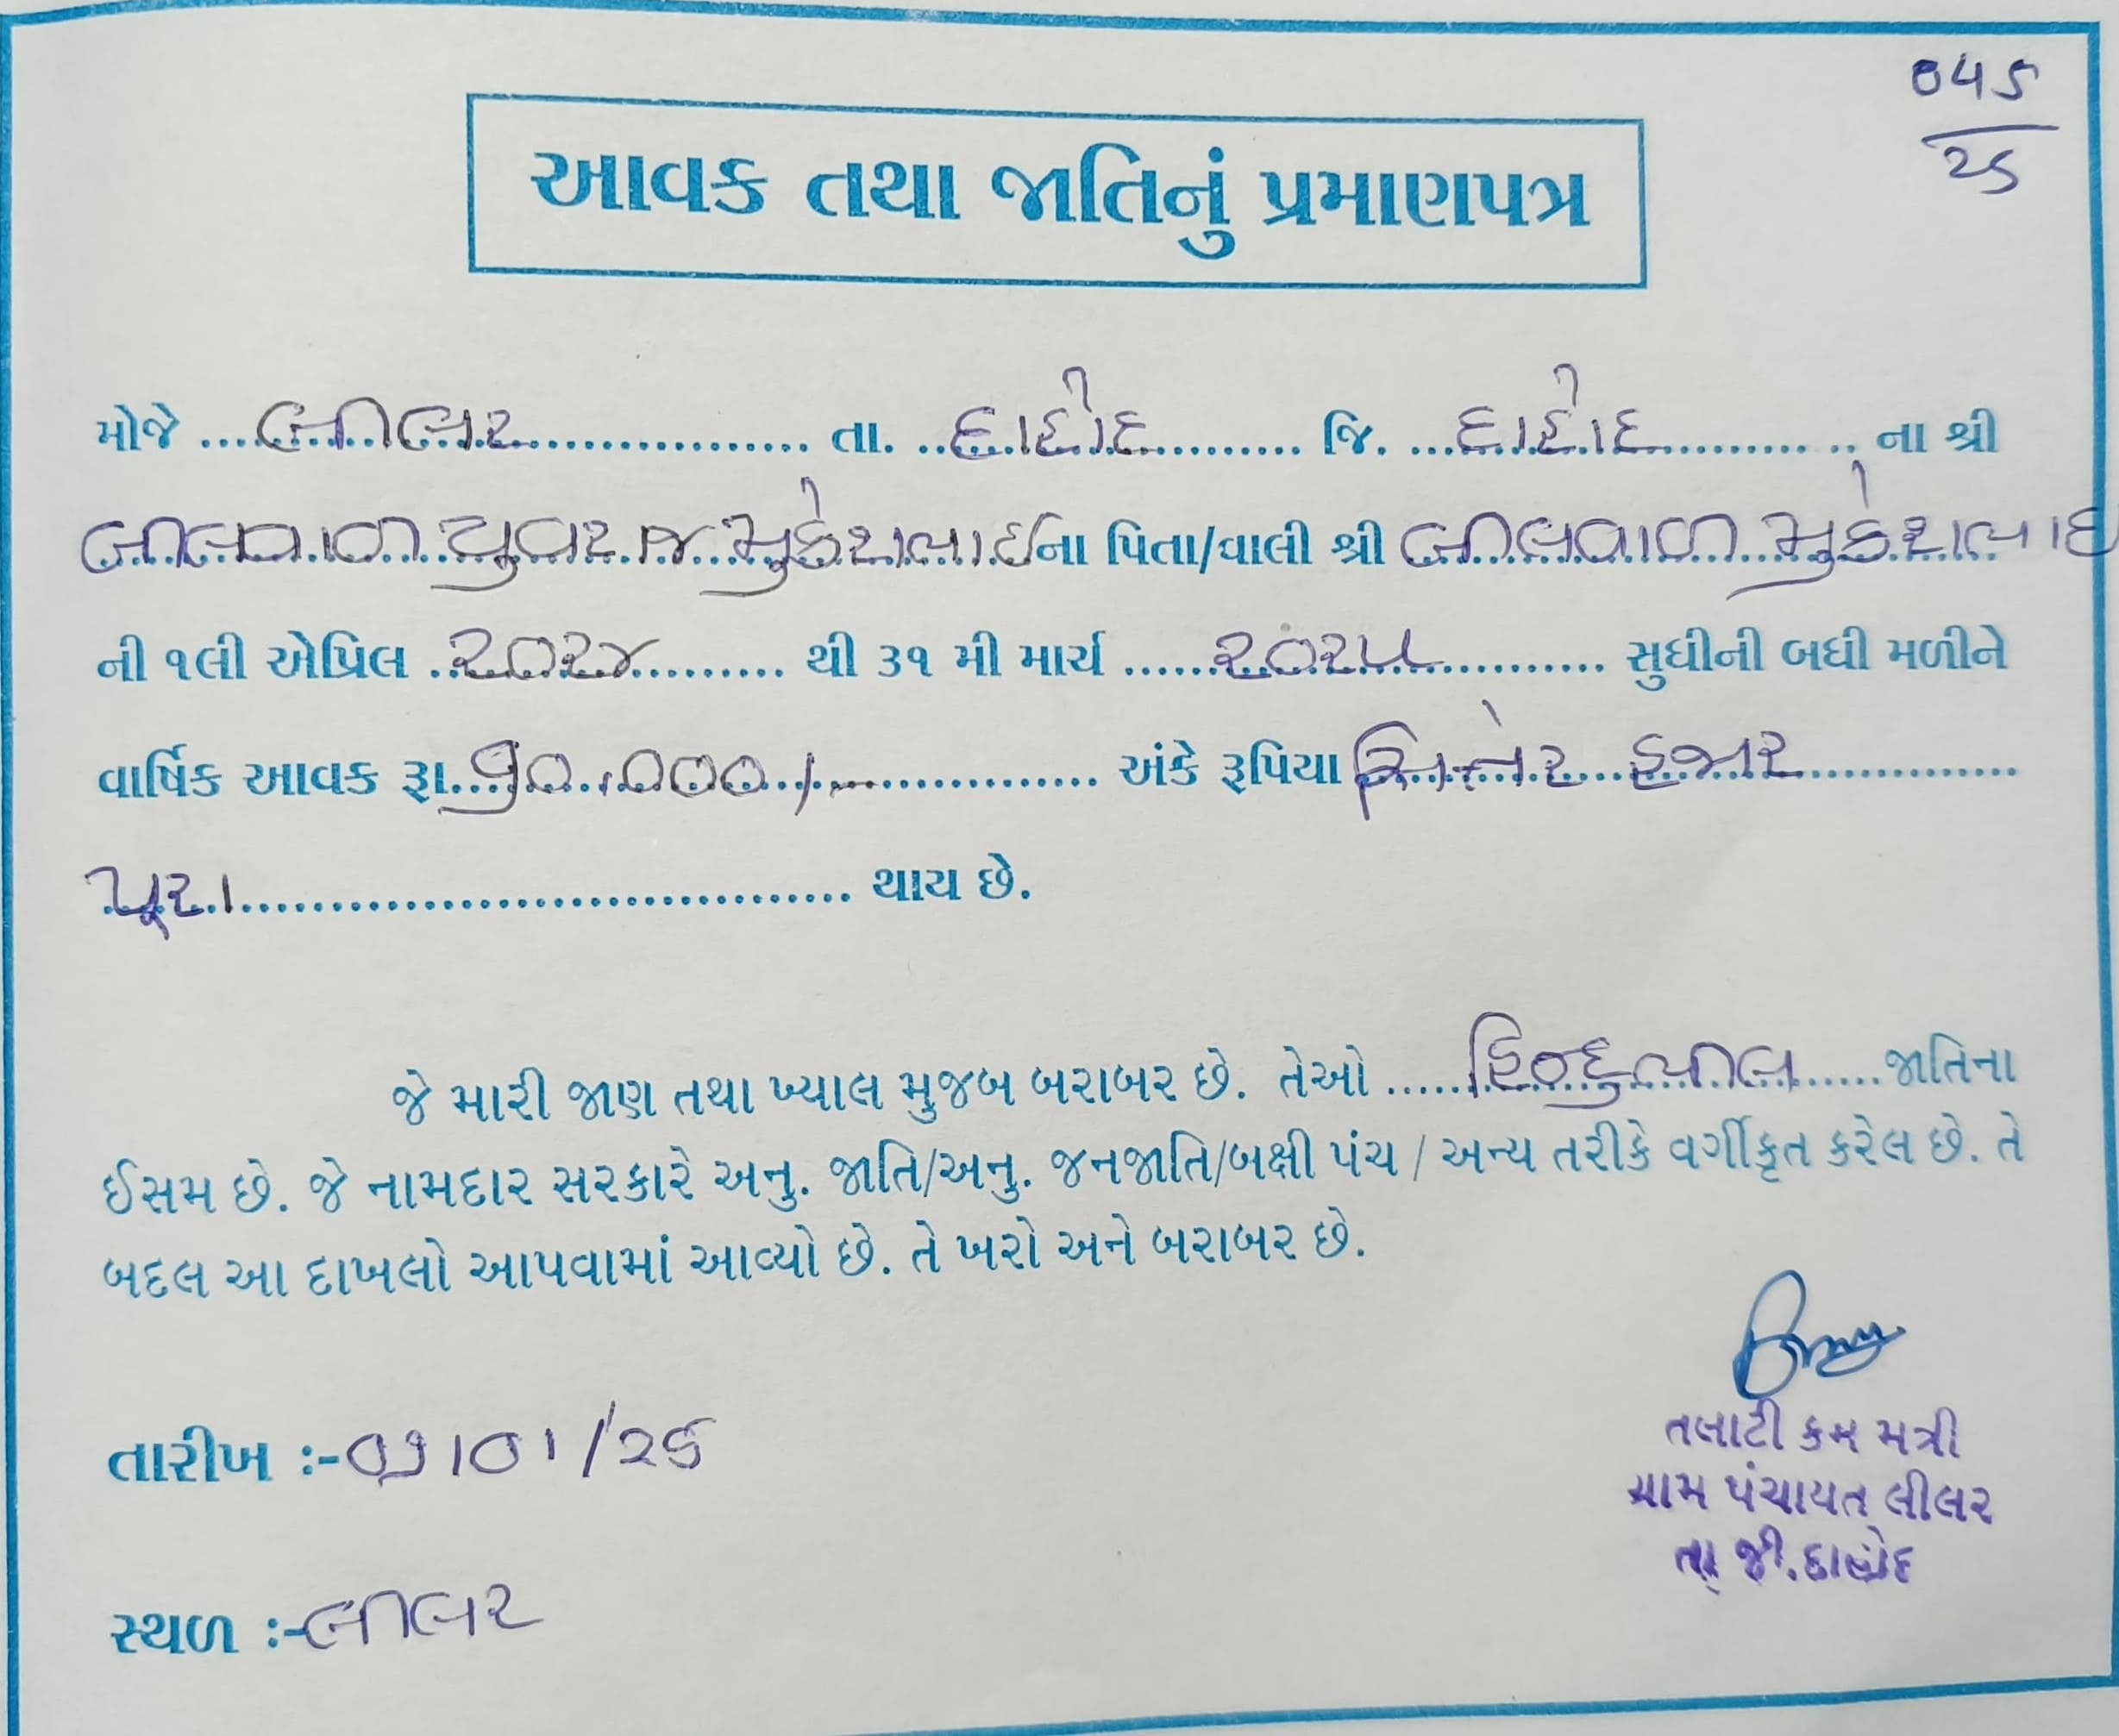 ૦૫૬
૨૬
આવક તથા જાતિનું પ્રમાણપત્ર
મોજે ....લીલર.................... તા. ..દાહોદ.......... જિ. ...દાહોદ............ ના શ્રી
બીલવાળ યુવરાજ મુકેશભાઈના પિતા/વાલી શ્રી બીલવાળ મુકેશભાઈ
ની ૧લી એપ્રિલ ..૨૦૨૪.......... થી ૩૧ મી માર્ચ ......૨૦૨૫............ સુધીની બધી મળીને
વાર્ષિક આવક રૂા..૭૦,૦૦૦/-.................. અંકે રૂપિયા સિત્તેર હજાર..............
પૂરા.................................... થાય છે.
જે મારી જાણ તથા ખ્યાલ મુજબ બરાબર છે. તેઓ ......હિન્દુ ભીલ......જાતિના
ઈસમ છે. જે નામદાર સરકારે અનુ. જાતિ/અનુ. જનજાતિ/બક્ષી પંચ / અન્ય તરીકે વર્ગીકૃત કરેલ છે. તે
બદલ આ દાખલો આપવામાં આવ્યો છે. તે ખરો અને બરાબર છે.
તલાટી કમ મત્રી
તારીખ :-૦૭/૦૧/૨૬
ગ્રામ પંચાયત લીલર
તા જી.દાહોદ
સ્થળ :-લીલર